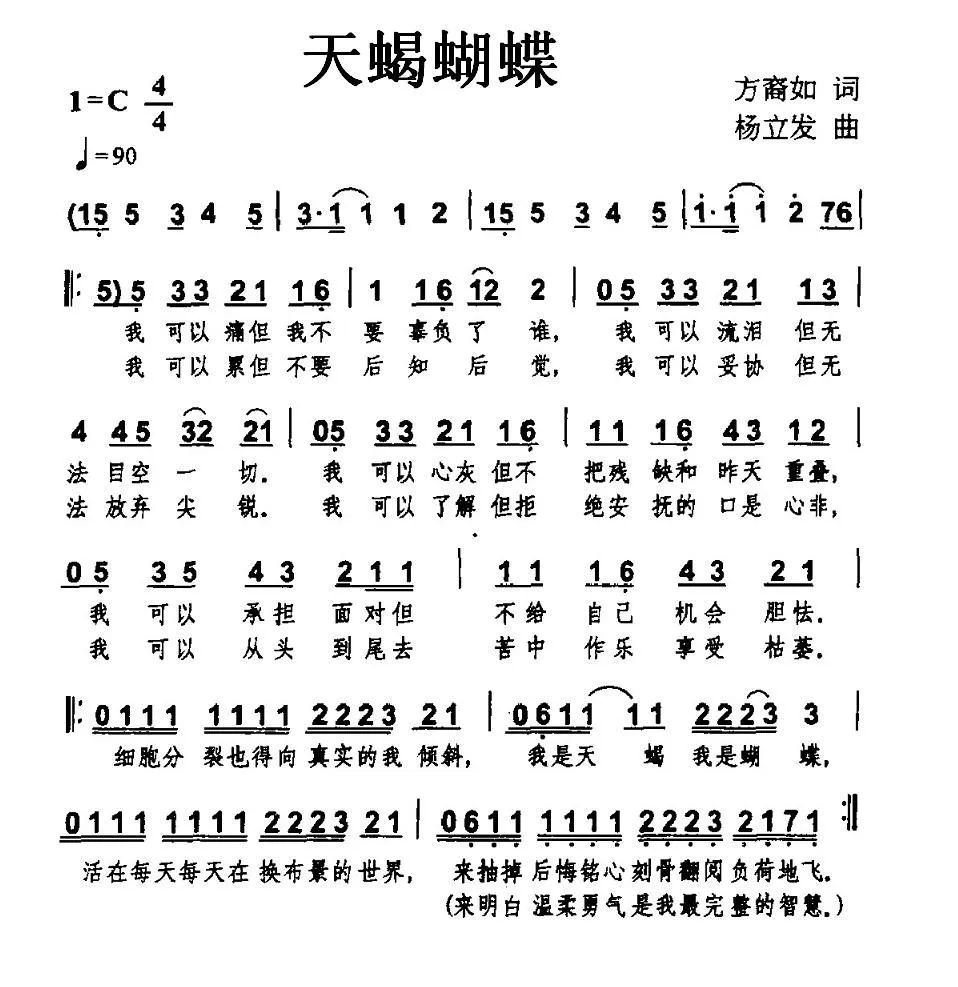 天蝎蝴蝶
1=C 4/4
♩=90
方裔如 词
杨立发 曲
(15 5 3 4 5 | 3·1 1 1 2 | 15 5 3 4 5 | 1·1 1 2 76 |
‖: 5) 5 33 21 16 | 1 16 12 2 | 05 33 21 13 |
我 可以 痛但 我不 要 辜负 了 谁, 我 可以 流泪 但无
我 可以 累但 不要 后 知 后 觉, 我 可以 妥协 但无
4 45 32 21 | 05 33 21 16 | 11 16 43 12 |
法 目空 一 切. 我 可以 心灰 但不 把残 缺和 昨天 重叠,
法 放弃 尖 锐. 我 可以 了解 但拒 绝安 抚的 口是 心非,
05 35 43 211 | 11 16 43 21 |
我 可以 承担 面对但 不给 自己 机会 胆怯.
我 可以 从头 到尾去 苦中 作乐 享受 枯萎.
‖: 0111 1111 2223 21 | 0611 11 2223 3 |
细胞分 裂也得向 真实的我 倾斜, 我是天 蝎 我是蝴 蝶,
0111 1111 2223 21 | 0611 1111 2223 2171 :‖
活在每天每天在 换布景的世界, 来抽掉 后悔铭心刻骨翻阅负荷地飞.
(来明白 温柔勇气是我最完整的智慧.)